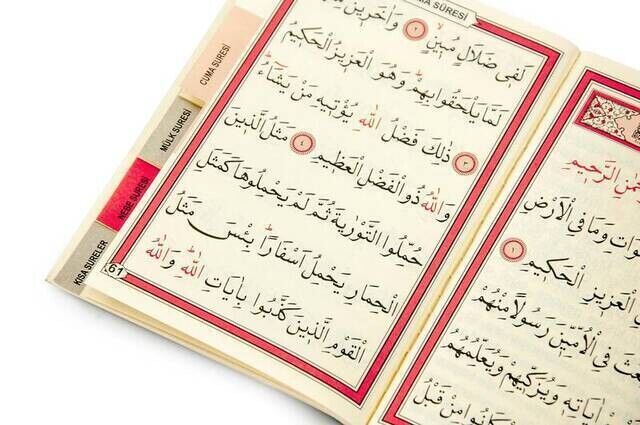 ـمٰنِ الرَّحِيمِ
ـوَاتِ وَمَا فِي الْاَرْضِ
الْعَزِيزِ الْحَكِيمِ ١
ـعَثَ فِي الْاُمِّيّنَ رَسُولًا مِنْهُمْ
اٰيَاتِهِ وَيُزَكِّيهِمْ وَيُعَلِّمُهُمُ
كَانُوا مِنْ قَبْلُ
MA SÛRESİ
لَفِي ضَلَالٍ مُبِينٍ ٢ وَاٰخَرِينَ
لَمَّا يَلْحَقُوا بِهِمْ وَهُوَ الْعَزِيزُ الْحَكِيمُ
٣ ذٰلِكَ فَضْلُ اللّٰهِ يُؤْتِيهِ مَنْ يَشَٓاءُ
وَاللّٰهُ ذُو الْفَضْلِ الْعَظِيمِ ٤ مَثَلُ الَّذِينَ
حُمِّلُوا التَّوْرٰيةَ ثُمَّ لَمْ يَحْمِلُوهَا كَمَثَلِ
الْحِمَارِ يَحْمِلُ اَسْفَارًا بِئْسَ مَثَلُ
الْقَوْمِ الَّذِينَ كَذَّبُوا بِاٰيَاتِ اللّٰهِ وَاللّٰهُ
61
CUMA SURESİ
MÜLK SURESİ
NEBE SURESİ
KISA SURELER